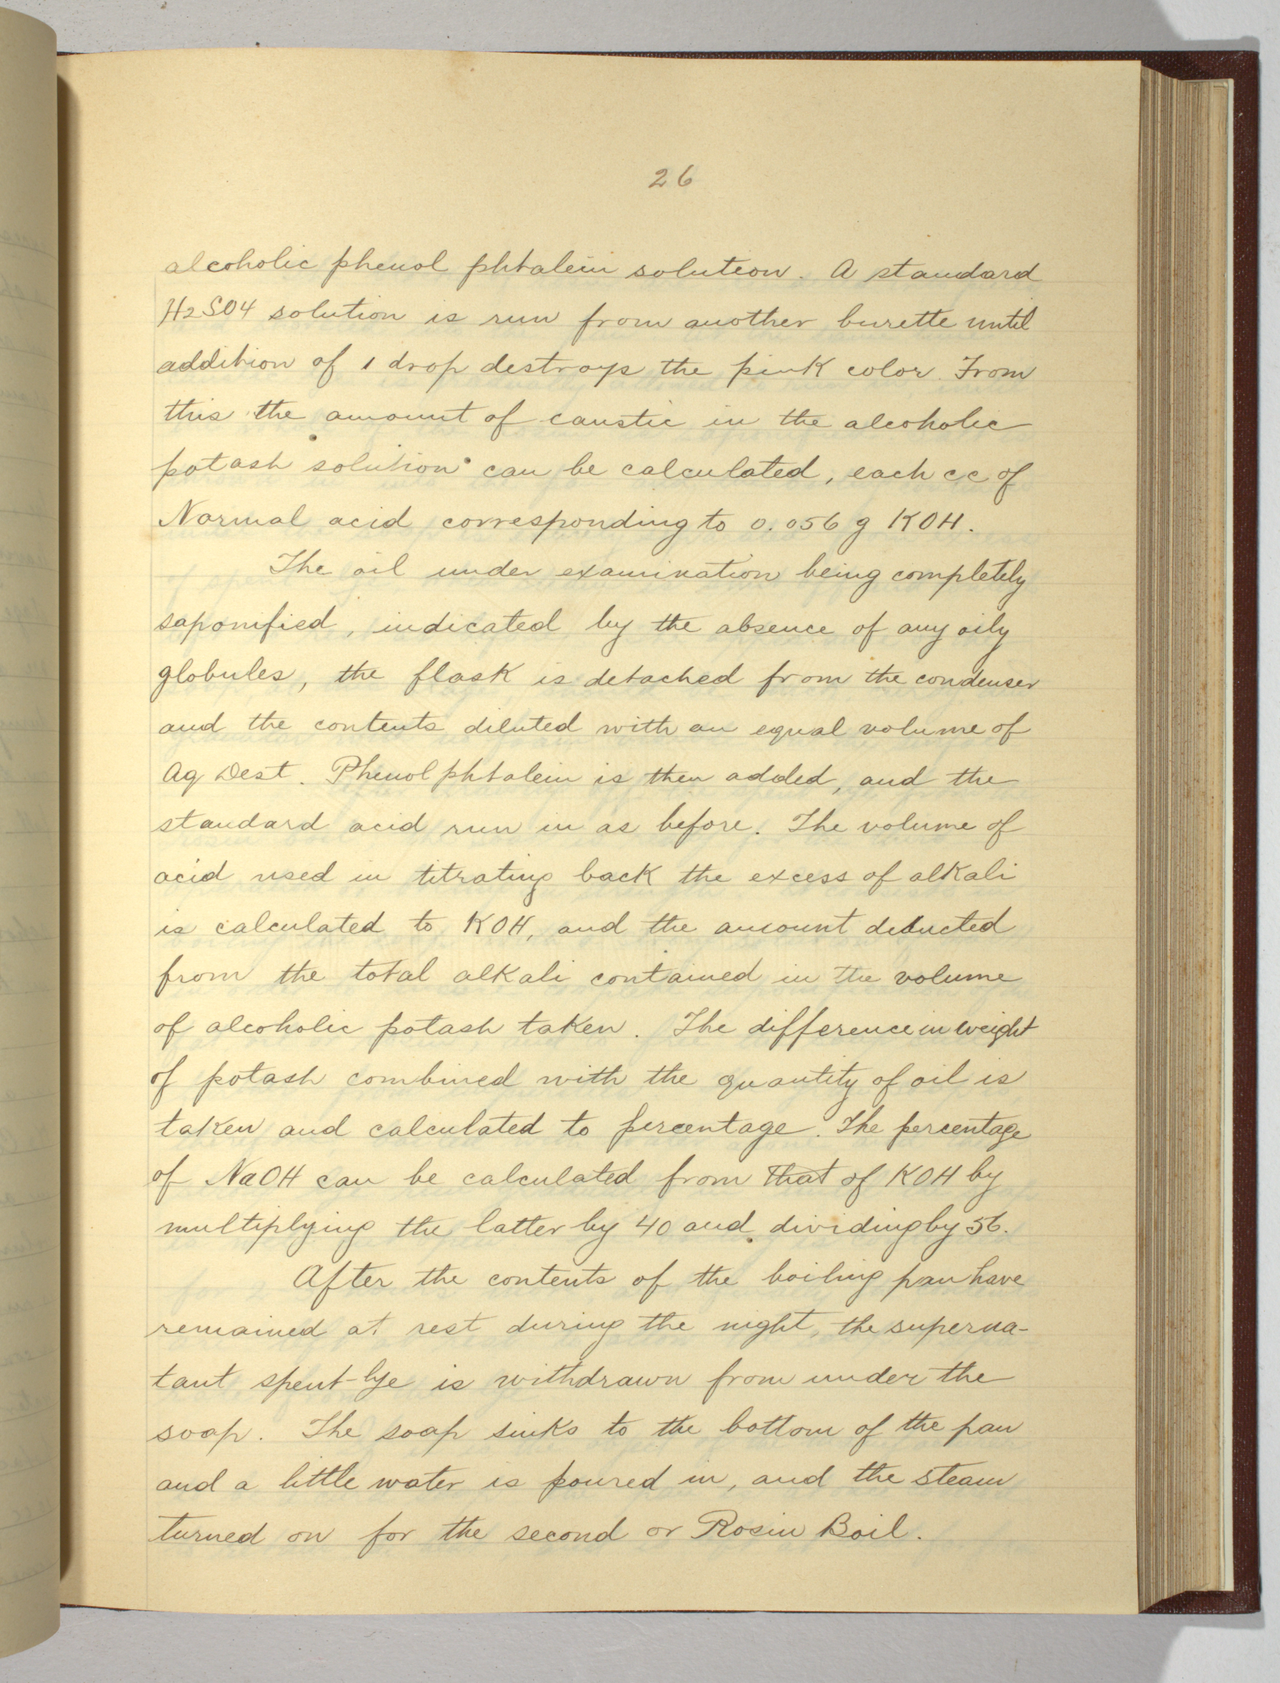 26
alcoholic phenol phtalein solution. A standard
H2SO4 solution is run from another burette until
addition of 1 drop destroys the pink color. From
this the amount of caustic in the alcoholic
potash solution can be calculated, each cc of
Normal acid corresponding to 0.056 g KOH.
The oil under examination being completely
saponified, indicated by the absence of any oily
globules, the flask is detached from the condenser
and the contents diluted with an equal volume of
Aq Dest. Phenol phtalein is then added, and the
standard acid run in as before. The volume of
acid used in titrating back the excess of alkali
is calculated to KOH, and the amount deducted
from the total alkali contained in the volume
of alcoholic potash taken. The difference in weight
of potash combined with the quantity of oil is
taken and calculated to percentage. The percentage
of NaOH can be calculated from that of KOH by
multiplying the latter by 40 and dividing by 56.
After the contents of the boiling pan have
remained at rest during the night, the superna-
tant spent lye is withdrawn from under the
soap. The soap sinks to the bottom of the pan
and a little water is poured in, and the steam
turned on for the second or Rosin Boil.